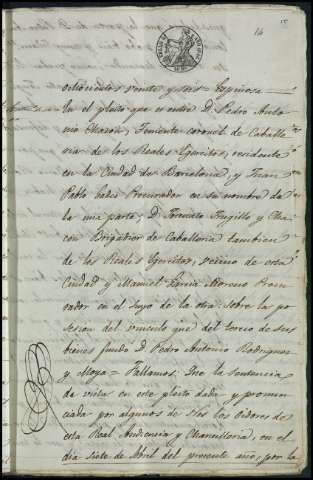 14
ochocientos veinte y seis = Espinosa =
En el pleito que es entre D. Pedro Anto
nio Chacon, Teniente coronel de Caballe
ria de los Reales Egercitos, residente
en la Ciudad de Barcelona, y Fran
Pablo Procurador en su nombre de
la una parte, D. Fernando Trugillo y Cha
con Brigadier de Caballeria tambien
de los Reales Egercitos, vecino de esta
Ciudad y Manuel Garcia Moreno Procu
rador en el suyo de la otra: sobre la po
sesion del vinculo que del tercio de sus
bienes fundó D. Pedro Antonio Rodriguez
y Moya = Fallamos: Que la Sentencia
de vista en este pleito dada y pronun
ciada por algunos de Nos los Oidores de
esta Real Audiencia y Chancilleria, en el
dia siete de Abril del presente año, por la